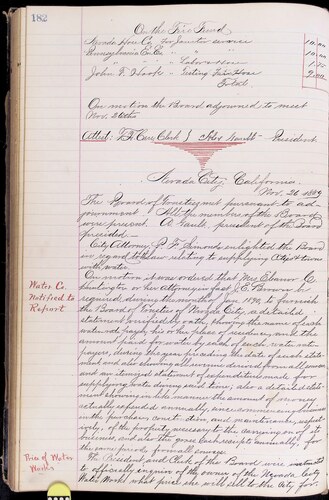 182
On the Fire Fund.
Nevada Hose Co. For Janitor service 10.00
Pennsylvania E. Co. " " " 10.00
" " " " Labor on Hose 1.
John T. Hook Testing Fire Hose
Total
On motion the Board adjourned to meet
Nov. 26th
Attest: T. H. Carr, Clerk President.
Nevada City, California.
Nov. 26 1889
The Board of Trustees met pursuant to ad-
journment. All the members of the Board
were present. A. Nault, president of the Board
presided —
City Attorney P. F. Simonds enlightened the Board
in regard to the law relating to supplying Cities & towns
with water.
On motion it was ordered that Mrs Eleanor C.
or her Attorney in fact J. E. Brown be
required, during the month of Jan 1890, to furnish
the Board of Trustees of Nevada City, a detailed
statement, verified by oath, showing the name of each
water rate payer, his or her place of residence, and the
amount paid for water by each of such water rate
payers, during the year preceding the date of such state-
ment and also showing all revenue derived from all sources
and an itemized statement of expenditures made for
supplying water during said time; also a detailed state-
ment showing in like manner the amount of money
actually expended annually, since commencing business
in the purchase, construction, and maintenance, respect-
ively, of the property necessary to the carrying on of its
business, and also the gross cash receipts annually, for
the same period, from all sources.
The President and Clerk of the Board were
to officially enquire of the owner of the Nevada City
Water Works what price she will sell to the City for
Water Co.
Notified to
Report
Price of Water
Works